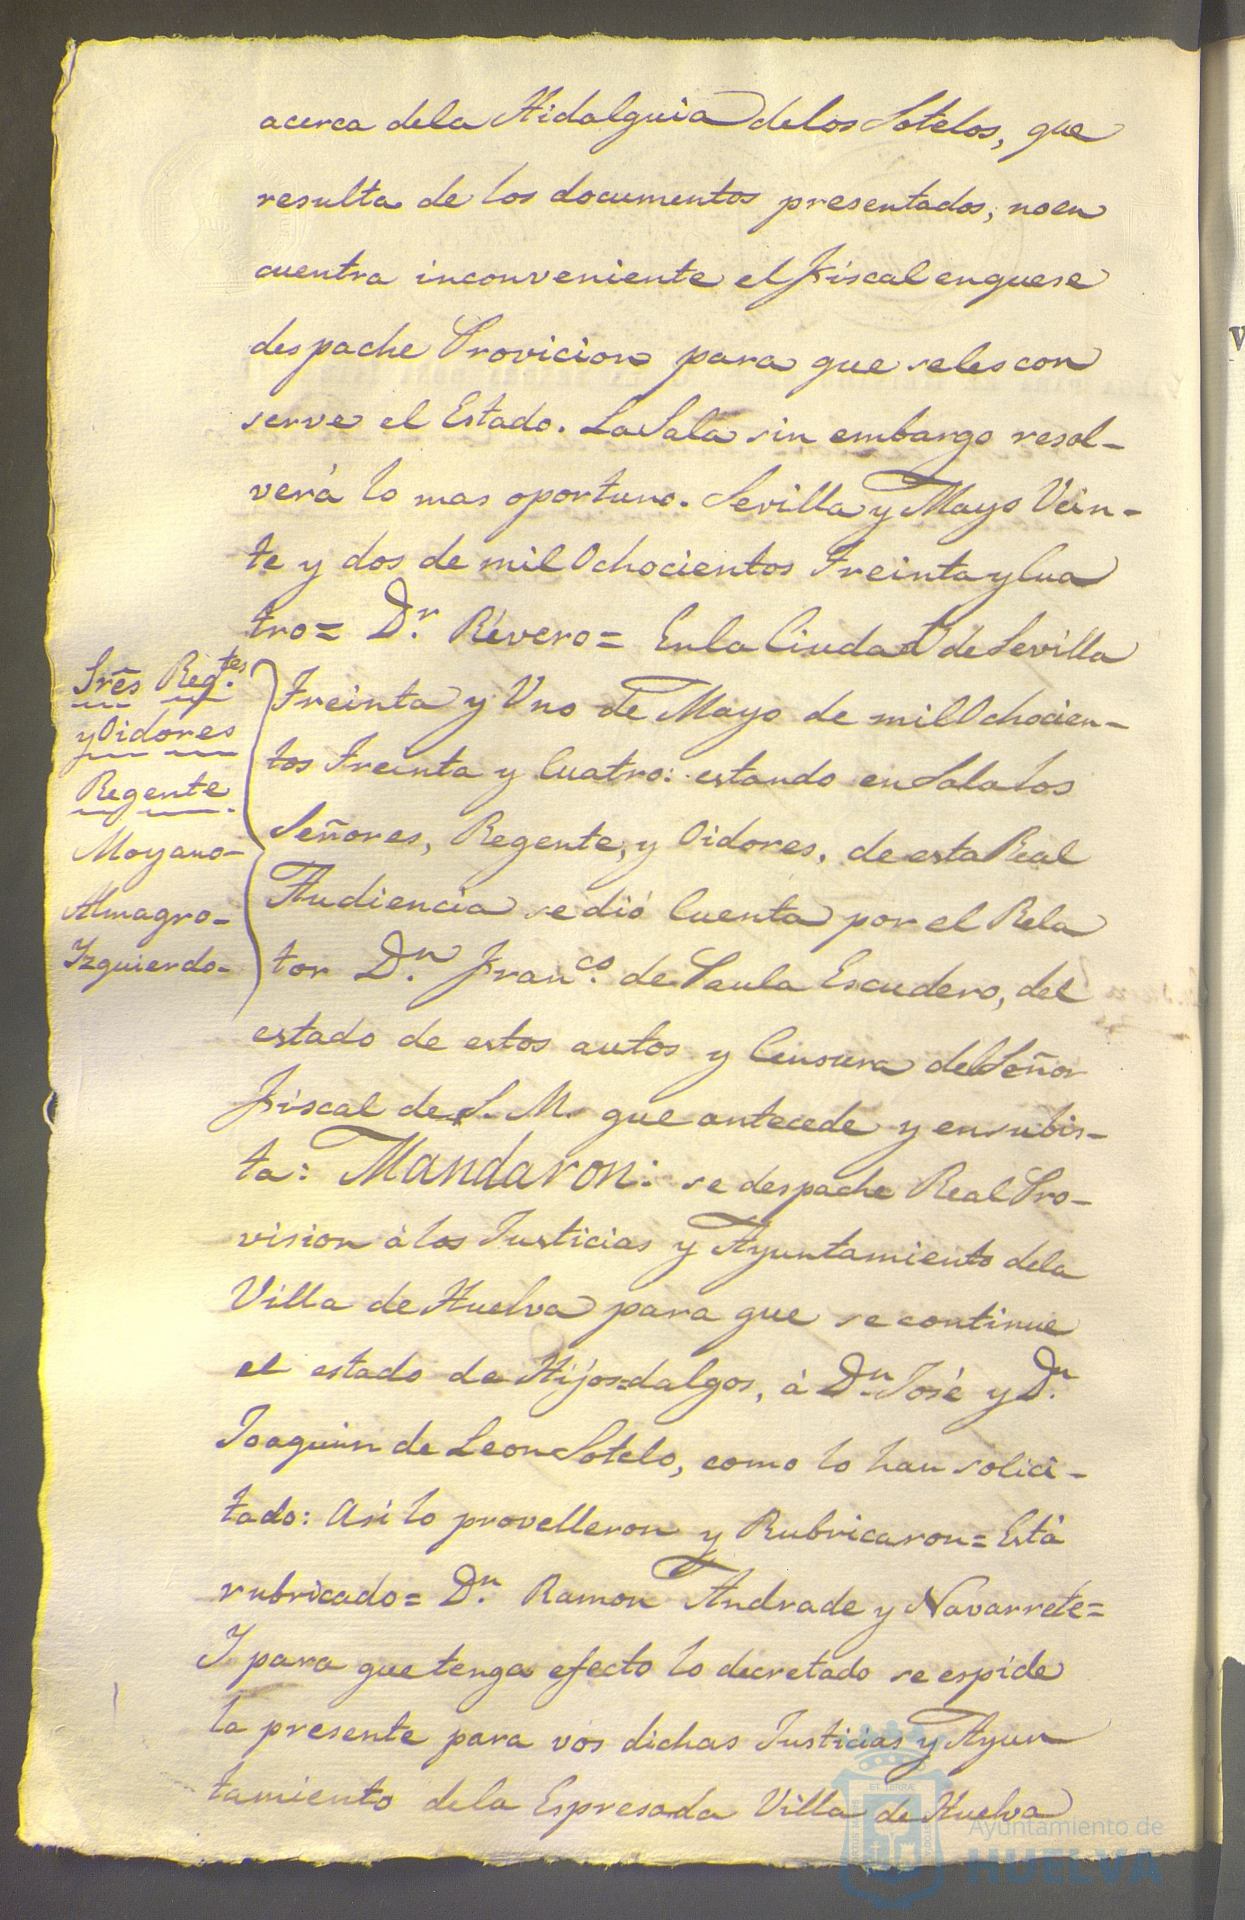 acerca dela Hidalguia delos Sotelos, que
resulta de los documentos presentados, noen
cuentra inconveniente el Fiscal enquese
despache Provicion para que selescon
serve el Estado. LaSala sin embargo resol-
verá lo mas oportuno. Sevilla y Mayo Vein-
te y dos de mil Ochocientos Treinta y Cua
tro= Dr. Rivero= Enla Ciudad de Sevilla
Treinta y Uno de Mayo de mil Ochocien-
tos Treinta y Cuatro: estando enSala los
Señores, Regente, y Oidores, de esta Real
Audiencia se dió Cuenta por el Rela
tor Dn. Franco. de Paula Escudero, del
estado de estos autos y Censura del Señor
Fiscal de S. M. que antecede y ensubis-
ta: Mandaron: se despache Real Pro-
vision á los Justicias y Ayuntamiento dela
Villa de Huelva para que se continue
el estado de Hijos=dalgos, á Dn. José y Dn.
Joaquin de Leon Sotelo, como lo han solici-
tado: Asi lo provelleron y Rubricaron= Está
rubricado= Dn. Ramon Andrade y Navarrete=
Y para que tenga efecto lo decretado se espide
la presente para vos dichas Justicias y Ayun
tamiento dela Espresada Villa de Huelva
Sres Regtes.
y Oidores
Regente.
Moyano-
Almagro-
Izquierdo-
Ayuntamiento de
HUELVA